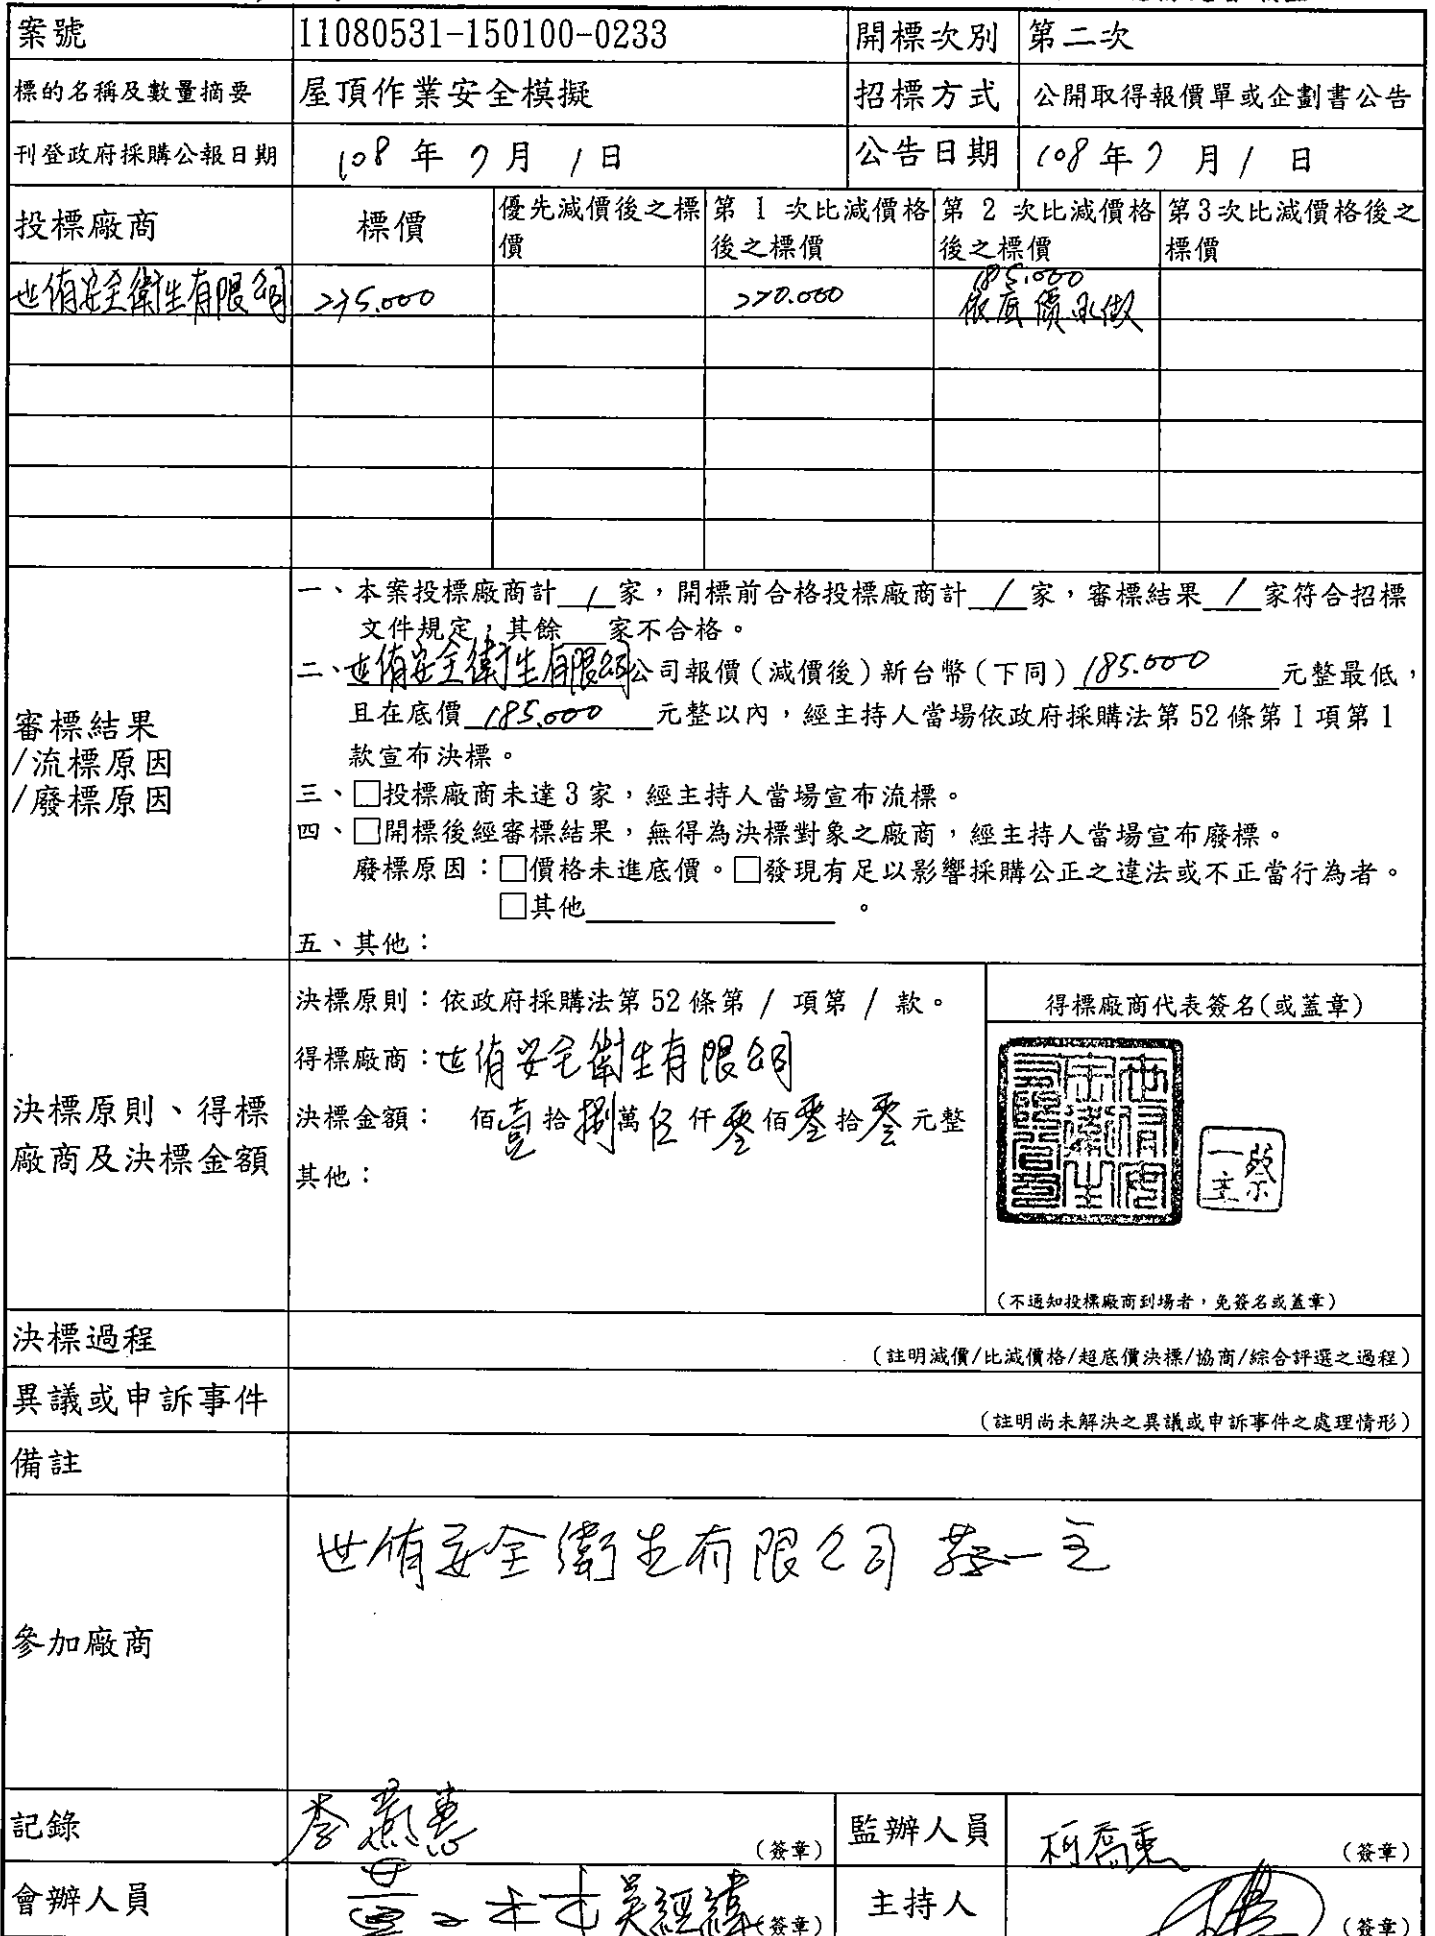 案號 11080531-150100-0233 開標次別 第二次
標的名稱及數量摘要 屋頂作業安全模擬 招標方式 公開取得報價單或企劃書公告
刊登政府採購公報日期 108 年 7 月 1 日 公告日期 108 年 7 月 1 日
投標廠商 標價 優先減價後之標價 第 1 次比減價格後之標價 第 2 次比減價格後之標價 第3次比減價格後之標價
世侑安全衛生有限公司 275.000 270.000 185.000
依底價承做
一、本案投標廠商計 1 家，開標前合格投標廠商計 1 家，審標結果 1 家符合招標
文件規定，其餘 家不合格。
二、世侑安全衛生有限公司公司報價（減價後）新台幣（下同）185.000 元整最低，
且在底價 185.000 元整以內，經主持人當場依政府採購法第 52 條第 1 項第 1
款宣布決標。
審標結果
/流標原因
/廢標原因
三、□投標廠商未達 3 家，經主持人當場宣布流標。
四、□開標後經審標結果，無得為決標對象之廠商，經主持人當場宣布廢標。
廢標原因：□價格未進底價。□發現有足以影響採購公正之違法或不正當行為者。
□其他 。
五、其他：
決標原則、得標
廠商及決標金額
決標原則：依政府採購法第 52 條第 1 項第 1 款。
得標廠商：世侑安全衛生有限公司
決標金額： 佰壹拾捌萬伍仟零佰零拾零元整
其他：
得標廠商代表簽名(或蓋章)
（不通知投標廠商到場者，免簽名或蓋章）
決標過程 （註明減價/比減價格/超底價決標/協商/綜合評選之過程）
異議或申訴事件 （註明尚未解決之異議或申訴事件之處理情形）
備註
參加廠商 世侑安全衛生有限公司 蔡一主
記錄 李燕惠 （簽章） 監辦人員 柯喬惠 （簽章）
會辦人員 吳經緯 （簽章） 主持人 （簽章）